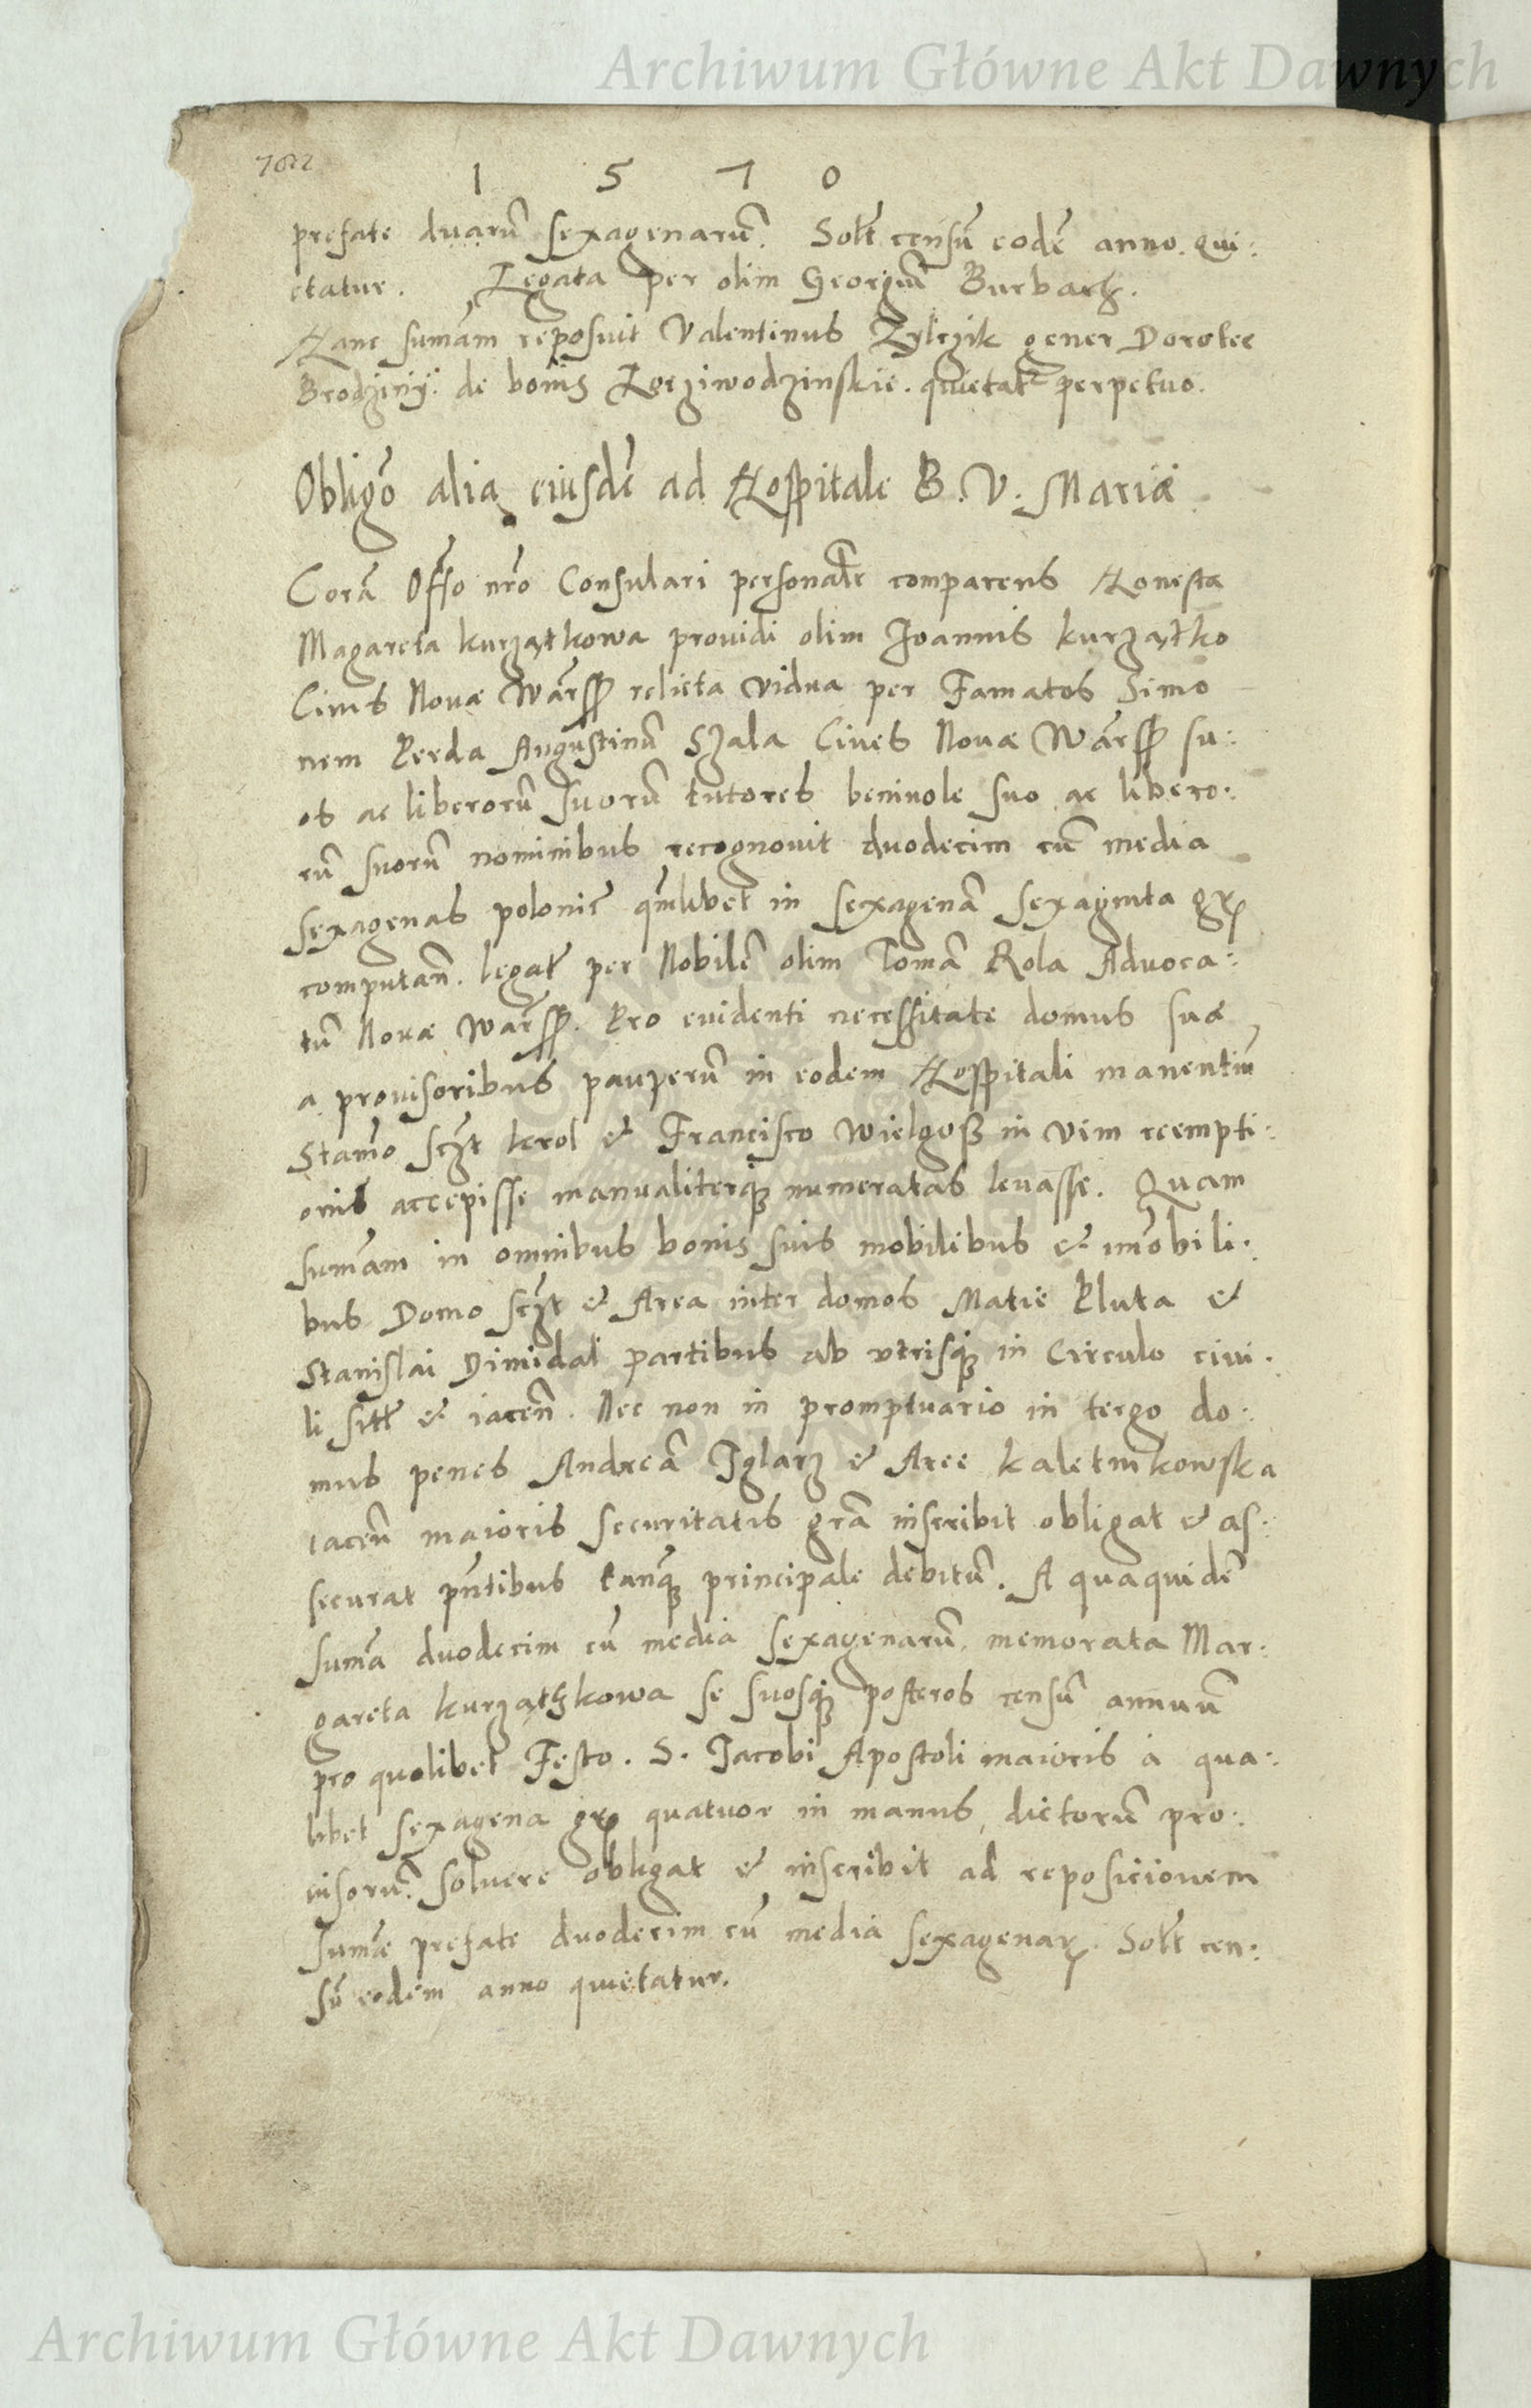 Archiwum Główne Akt Dawnych
1 5 7 0
prefate duarũ sexagenarũ. Solt censũ eodẽ anno qui:
etatur. Legata per olim Georgiũ Burbach.
Hanc sumam reposuit Valentinus Zylczik gener Dorotee
de bonis quietat perpetuo.
Obligõ alia eiusdẽ ad Hospitale B. V. Mariæ
Corã Offo nrõ Consulari personalr comparens Honesta
Magareta kurzątkowa prouidi olim Joannis kurzątko
Ciuis Nouæ Warss relicta vidua per Famatos Simo
nem Perda Augustinũ Szala Ciues Nouæ Warss su:
os ac liberorũ suorũ tutores beniuole suo ac libero:
rũ suorũ nominibus recognouit duodecim cũ media
sexagenas polonic qmlibet in sexagenã sexaginta gr
computañ. legat per Nobilẽ olim Tomã Rola Aduoca:
tũ Nouæ Warss. Pro euidenti necessitate domus suæ
a prouisoribus pauperũ in eodem Hospitali manentiũ
Stano sczt krol & Francisco Wielgosz in vim reempti:
onis accepisse manualiterq3 numeratas leuasse. Quam
sumam in omnibus bonis suis mobilibus & imobili:
bus Domo sczt & Area inter domos Matie Pluta &
Stanislai Dimidal partibus ab vtrisq3 in Circulo ciui:
li sitt & iaceñ. Nec non in promptuario in tergo do:
mus penes Andreã Iglarz & Aree kaletnikowska
iaceñ maioris securitatis grã inscribit obligat & as:
securat pñtibus tanq3 principale debitũ. A quaquidẽ
sumã duodecim cũ media sexagenarũ memorata Mar:
gareta kurzątkowa se suosq3 posteros censũ annuũ
pro quolibet Festo. S. Jacobi Apostoli maioris à qua:
libet sexagena gr quatuor in manus dictorũ pro:
uisorũ soluere obligat & inscribit ad reposicionem
sumæ prefate duodecim cũ media sexagenar. Solt cen:
sũ eodem anno quietatur.
Archiwum Główne Akt Dawnych